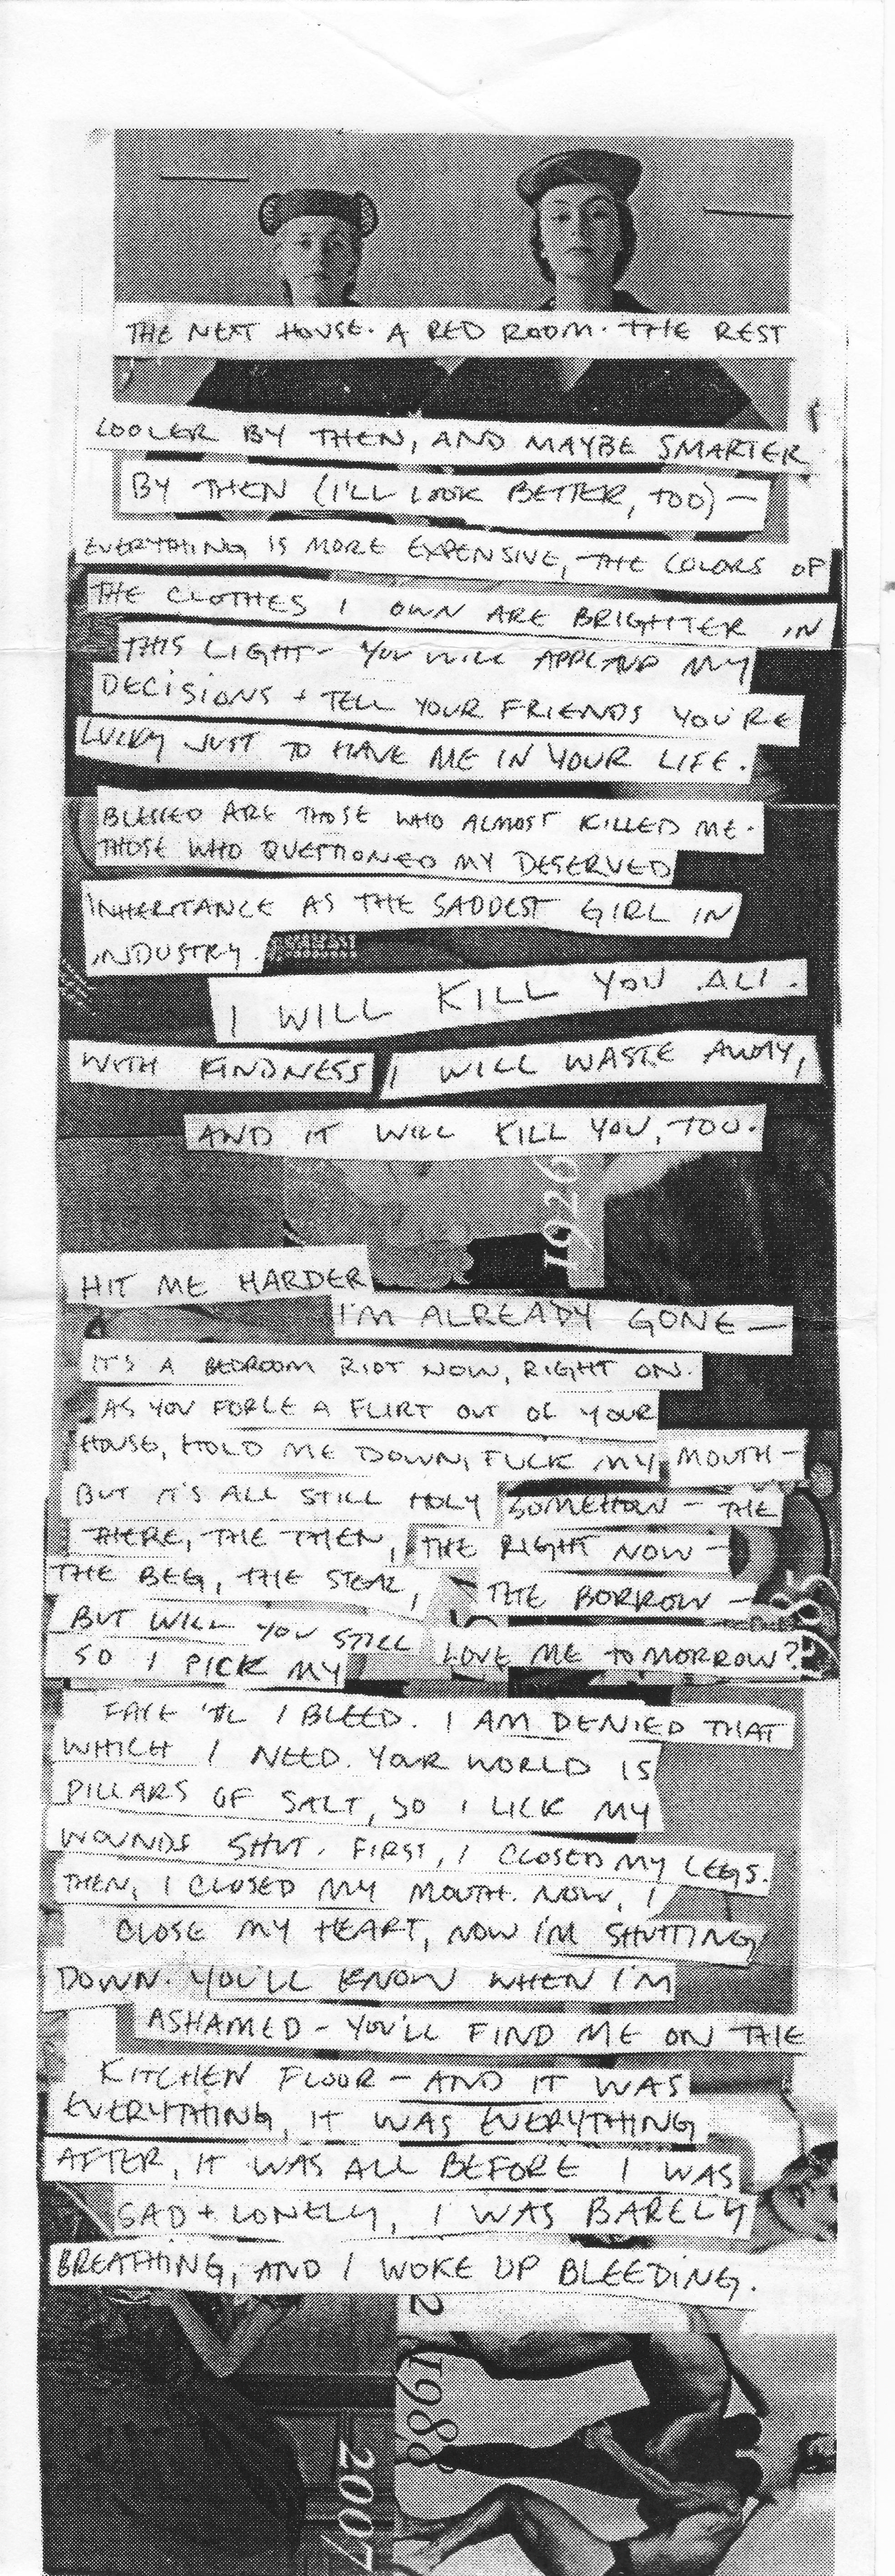 THE NEXT HOUSE. A RED ROOM. THE REST
COOLER BY THEN, AND MAYBE SMARTER
BY THEN (I'LL LOOK BETTER, TOO) —
EVERYTHING IS MORE EXPENSIVE, THE COLORS OF
THE CLOTHES I OWN ARE BRIGHTER IN
THIS LIGHT - YOU WILL APPLAUD MY
DECISIONS + TELL YOUR FRIENDS YOU'RE
LUCKY JUST TO HAVE ME IN YOUR LIFE.
BLESSED ARE THOSE WHO ALMOST KILLED ME.
THOSE WHO QUESTIONED MY DESERVED
INHERITANCE AS THE SADDEST GIRL IN
INDUSTRY.
I WILL KILL YOU ALL.
WITH KINDNESS I WILL WASTE AWAY,
AND IT WILL KILL YOU, TOO.
1926
HIT ME HARDER
I'M ALREADY GONE —
IT'S A BEDROOM RIOT NOW, RIGHT ON.
AS YOU FORCE A FLIRT OUT OF YOUR
HOUSE, HOLD ME DOWN, FUCK MY MOUTH —
BUT IT'S ALL STILL HOLY SOMEHOW - THE
THERE, THE THEN, THE RIGHT NOW -
THE BEG, THE STEAL, THE BORROW —
BUT WILL YOU STILL LOVE ME TOMORROW?
SO I PICK MY
FACE 'TIL I BLEED. I AM DENIED THAT
WHICH I NEED. YOUR WORLD IS
PILLARS OF SALT, SO I LICK MY
WOUNDS SHUT. FIRST, I CLOSED MY LEGS.
THEN, I CLOSED MY MOUTH. NOW, I
CLOSE MY HEART, NOW I'M SHUTTING
DOWN. YOU'LL KNOW WHEN I'M
ASHAMED - YOU'LL FIND ME ON THE
KITCHEN FLOOR - AND IT WAS
EVERYTHING, IT WAS EVERYTHING
AFTER, IT WAS ALL BEFORE I WAS
SAD + LONELY, I WAS BARELY
BREATHING, AND I WOKE UP BLEEDING.
2
1988
2007